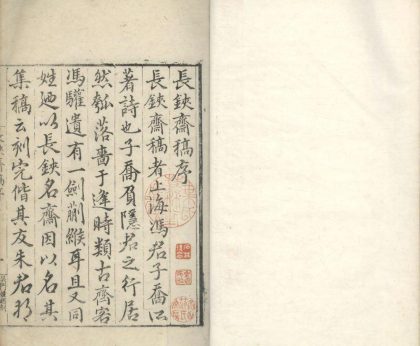 長鋏齋稿序
長鋏齋稿者上海馮君子喬所
著詩也子喬負隱君之行居
然瓠落嗇于逢時類古齊客
馮驩遺有一劍蒯緱耳且又同
姓廼以長鋏名齋因以名其
集稿云刻完偕其友朱君邦